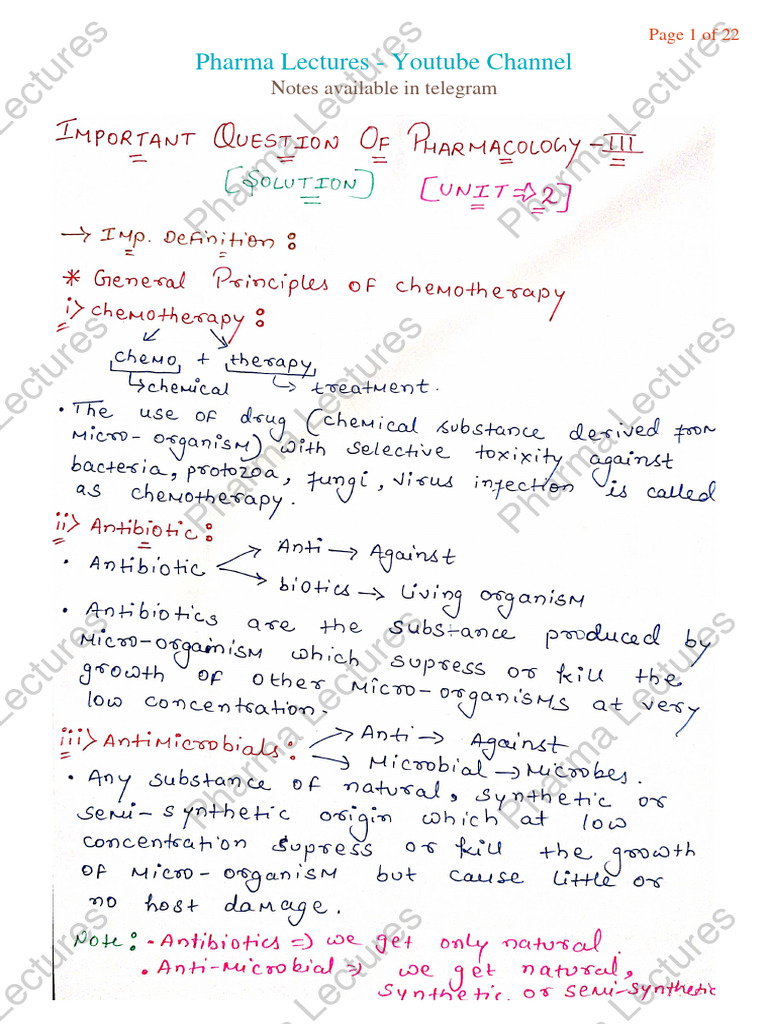 Page 1 of 22
Pharma Lectures - Youtube Channel
Notes available in telegram
IMPORTANT QUESTION OF PHARMACOLOGY-III
[SOLUTION] [UNIT⇒2]
→ IMP. Definition:
* General Principles of chemotherapy
i> chemotherapy:
chemo + therapy
↳chemical ↳ treatment.
• The use of drug (chemical substance derived from
micro-organism) with selective toxixity against
bacteria, protozoa, fungi, virus infection is called
as chemotherapy.
ii> Antibiotic:
Anti → Against
• Antibiotic
biotics → Living organism
• Antibiotics are the substance produced by
micro-orgainism which supress or kill the
growth of other micro-organisms at very
low concentration.
iii> AntiMicrobials: Anti → Against
→ Microbial → Microbes.
• Any substance of natural, synthetic or
semi-synthetic origin which at low
concentration supress or kill the growth
of micro-organism but cause little or
no host damage.
Note: • Antibiotics ⇒ we get only natural.
• Anti-microbial ⇒ we get natural,
synthetic or semi-synthetic
Pharma Lectures